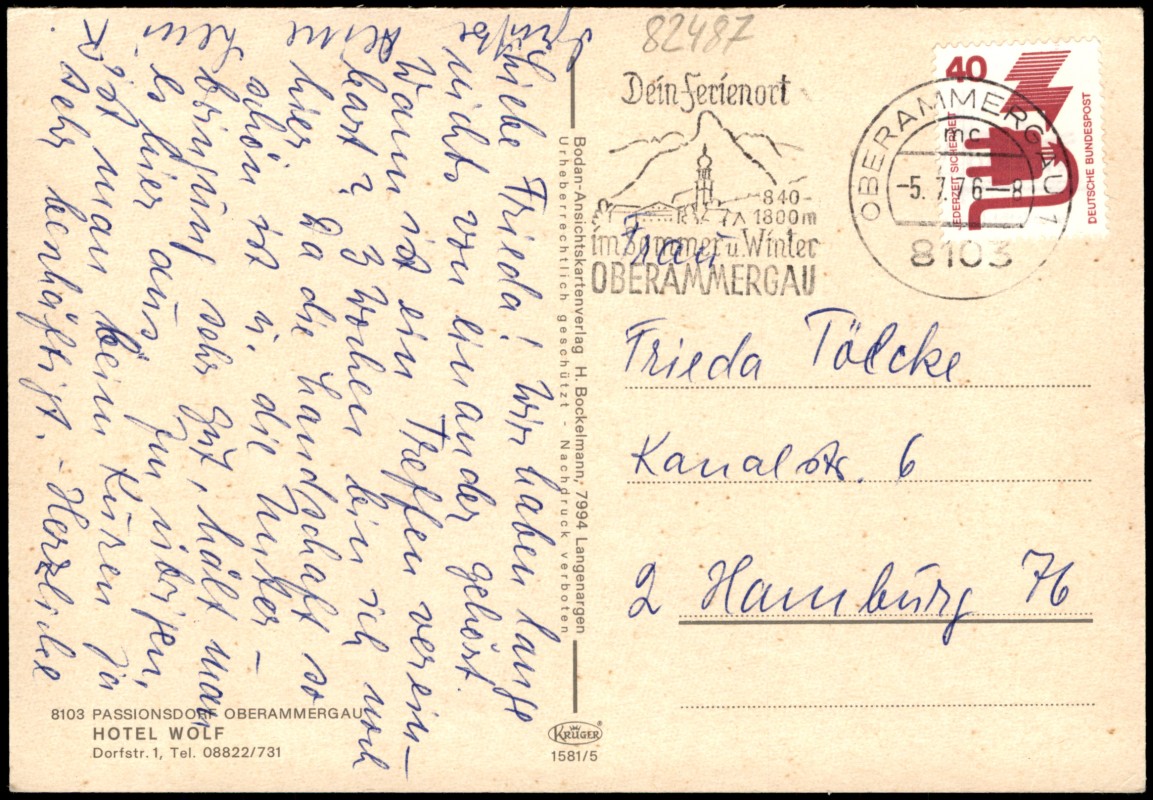 82487
Dein Ferienort
840-
1800m
im Sommer u. Winter
OBERAMMERGAU
OBERAMMERGAU 1
mc
-5.7.76-8
8103
40
JEDERZEIT SICHERHEIT
DEUTSCHE BUNDESPOST
Liebe Frieda! Wir haben lange
nichts von einander gehört.
Wann ist ein Treffen verein-
bart? 3 Wochen bin ich noch
hier. Da die Landschaft so
schön ist u. die Unter-
bringung sehr gut, hält man
es hier aus. Im übrigen,
ist man beim Kuren ja
sehr beschäftigt. - Herzliche
Grüße
Frau
Frieda Tölcke
Kanalstr. 6
2 Hamburg 76
Bodan-Ansichtskartenverlag H. Bockelmann, 7994 Langenargen
Urheberrechtlich geschützt - Nachdruck verboten
8103 PASSIONSDORF OBERAMMERGAU
HOTEL WOLF
Dorfstr. 1, Tel. 08822/731
KRÜGER
1581/5